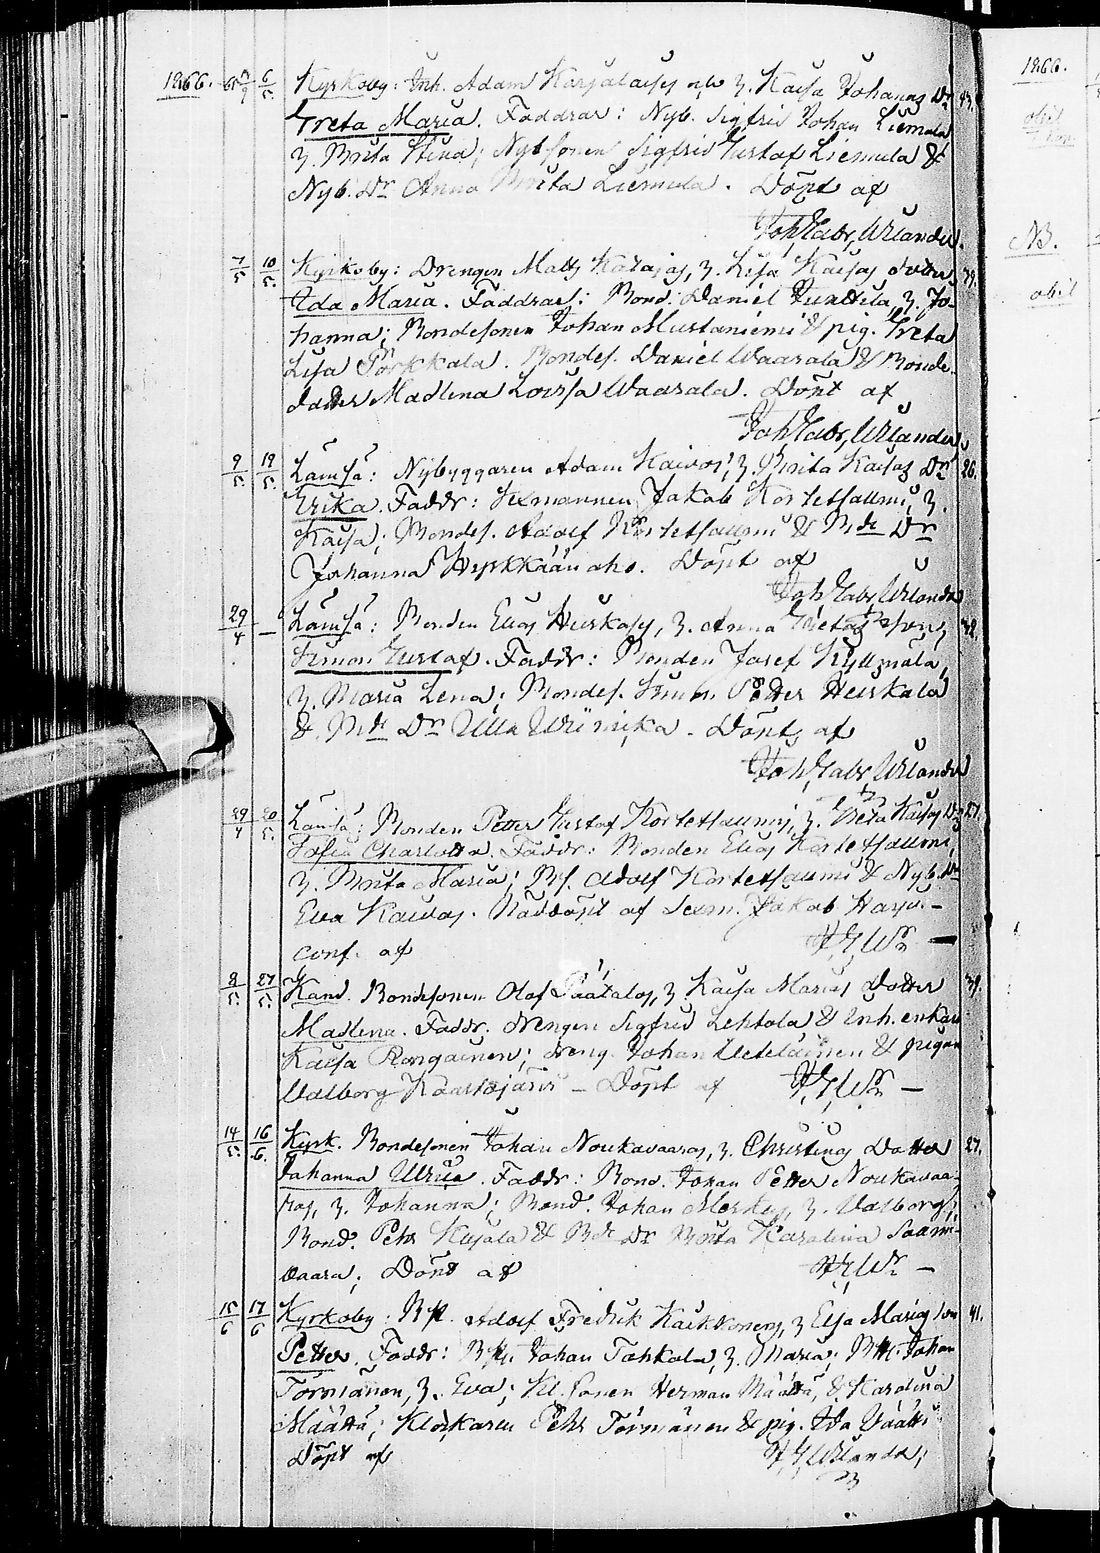 1866. 6/5 Kyrkoby: Inh. Adam Karjalaises o/w h. Kaisa Johanas Dr 43.
Greta Maria. Faddrar: Nyb. Sigfrid Johan Liemula
h. Brita Stina; Nyb sonen Sigfrid Gustaf Liemula &
Nyb. Dr Anna Brita Liemula. Döpt af
Joh Gabr, Wilander.
7/5 10/5 Kyrkoby: Drengen Matts Katajas, h. Lisa Kaisas dotter
Ida Maria. Faddrar: Bond. Daniel Junttila, h. Jo-
hanna; Bondesonen Johan Mustaniemi & pig. Greta
Lisa Pörkkala. Bondes. Daniel Waarala & Bonde-
dotter Madlena Lovisa Waarala. Döpt af
Joh Gabr, Wilander
9/5 19/5 Lämsä: Nybyggaren Adam Kaivos, h. Brita Kaisas Dr 26.
Erika. Faddr: Sexmannen Jakob Kortetsalmi, h.
Kaisa; Bondes. Adolf Kortetsalmi & Bde Dr
Johanna Hyrkkäänaho. Döpt af
Joh Gabr, Wilander
29/4 — Lämsä: Bonden Elias Heiskas, h. Anna Gretas son,
Simon Gustaf. Faddr: Bonden Josef Kyllmälä,
h. Maria Lena; Bondes. Simon Petter Heiskala
& Bde Dr Ulla Wiinika. Döpt af
Joh Gabr, Wilander
29/4 20/5 Lämsä: Bonden Petter Gustaf Kortetsalmis, h. Greta Kaisas Dr 27.
Sofia Charlotta. Faddr: Bonden Elias Kortetsalmi,
h. Brita Maria; Bs. Adolf Kortetsalmi & Nyb. Dr
Eva Kaivos. Nöddöpt af Sexm. Jakob Harju—
conf. af J, G, Wr —
8/5 27/5 Kand. Bondesonen Olof Päätalos, h Kaisa Marias Dotter 39.
Madlena. Faddr. Drengen Sigfrid Lehtola & Inh. enkan
Kaisa Rongainen; dreng. Johan Heteläinen & pigan
Valborg Kaartojärvi — Döpt af J, G, Wr —
14/5 16/6. Kyrk. Bondesonen Johan Noukavaaras, h. Christinas Dotter 27.
Johanna Ulrica. Faddr: Bond. Johan Petter Noukavaa-
ras, h. Johanna; Bond. Johan Mersky, h. Valborg;
Bond. Pehr Kujala & Bde Dr Brita Karolina Saari-
vaara; Döpt af J, G, Wr —
15/6 17/6 Kyrkoby: Adolf Fredrik Kaikkonens, h Elsa Marias son 41.
Petter. Faddr: Johan Tahkola, h. Maria; Johan
Törmänen, h. Eva; Kl. sonen Herman Määttä, & Karolina
Määttä; Klockaren Pehr Törmänen & pig. Ida Väätti
Döpt af J, G, Wilander,
1866.
obit
NB.
obit